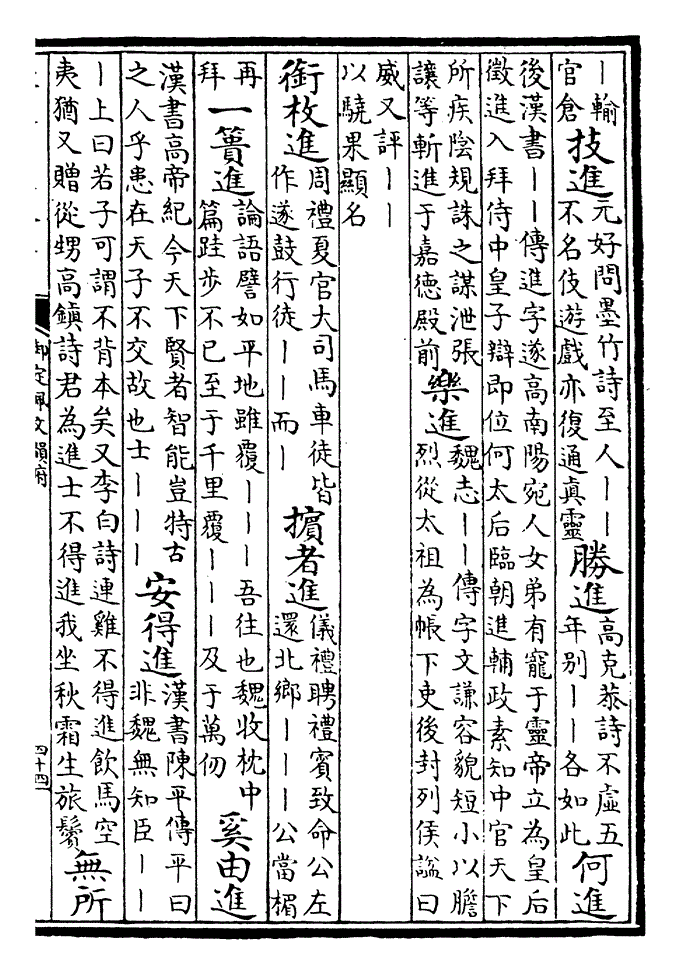 丨輸
官倉
技進
元好問墨竹詩至人丨丨
不名伎遊戲亦復通眞靈
勝進
高克恭詩不虛五
年别丨丨各如此
何進
後漢書丨丨傳進字遂高南陽宛人女弟有寵于靈帝立為皇后
徵進入拜侍中皇子辯即位何太后臨朝進輔政素知中官天下
所疾陰規誅之謀泄張
讓等斬進于嘉德殿前
樂進
魏志丨丨傳字文謙容貌短小以膽
烈從太祖為帳下吏後封列侯諡曰
威又評丨丨
以驍果顯名
銜枚進
周禮夏官大司馬車徒皆
作遂鼓行徒丨丨而丨
擯者進
儀禮聘禮賓致命公左
還北鄉丨丨丨公當楣
再
拜
一簣進
論語譬如平地雖覆丨丨丨吾往也魏收枕中
篇跬步不已至于千里覆丨丨丨及于萬仞
奚由進
漢書高帝紀今天下賢者智能豈特古
之人乎患在天子不交故也士丨丨丨
安得進
漢書陳平傳平曰
非魏無知臣丨丨
丨上曰若子可謂不背本矣又李白詩連雞不得進飲馬空
夷猶又贈從甥高鎮詩君為進士不得進我坐秋霜生旅鬢
無所
御定佩文韻府
四十四